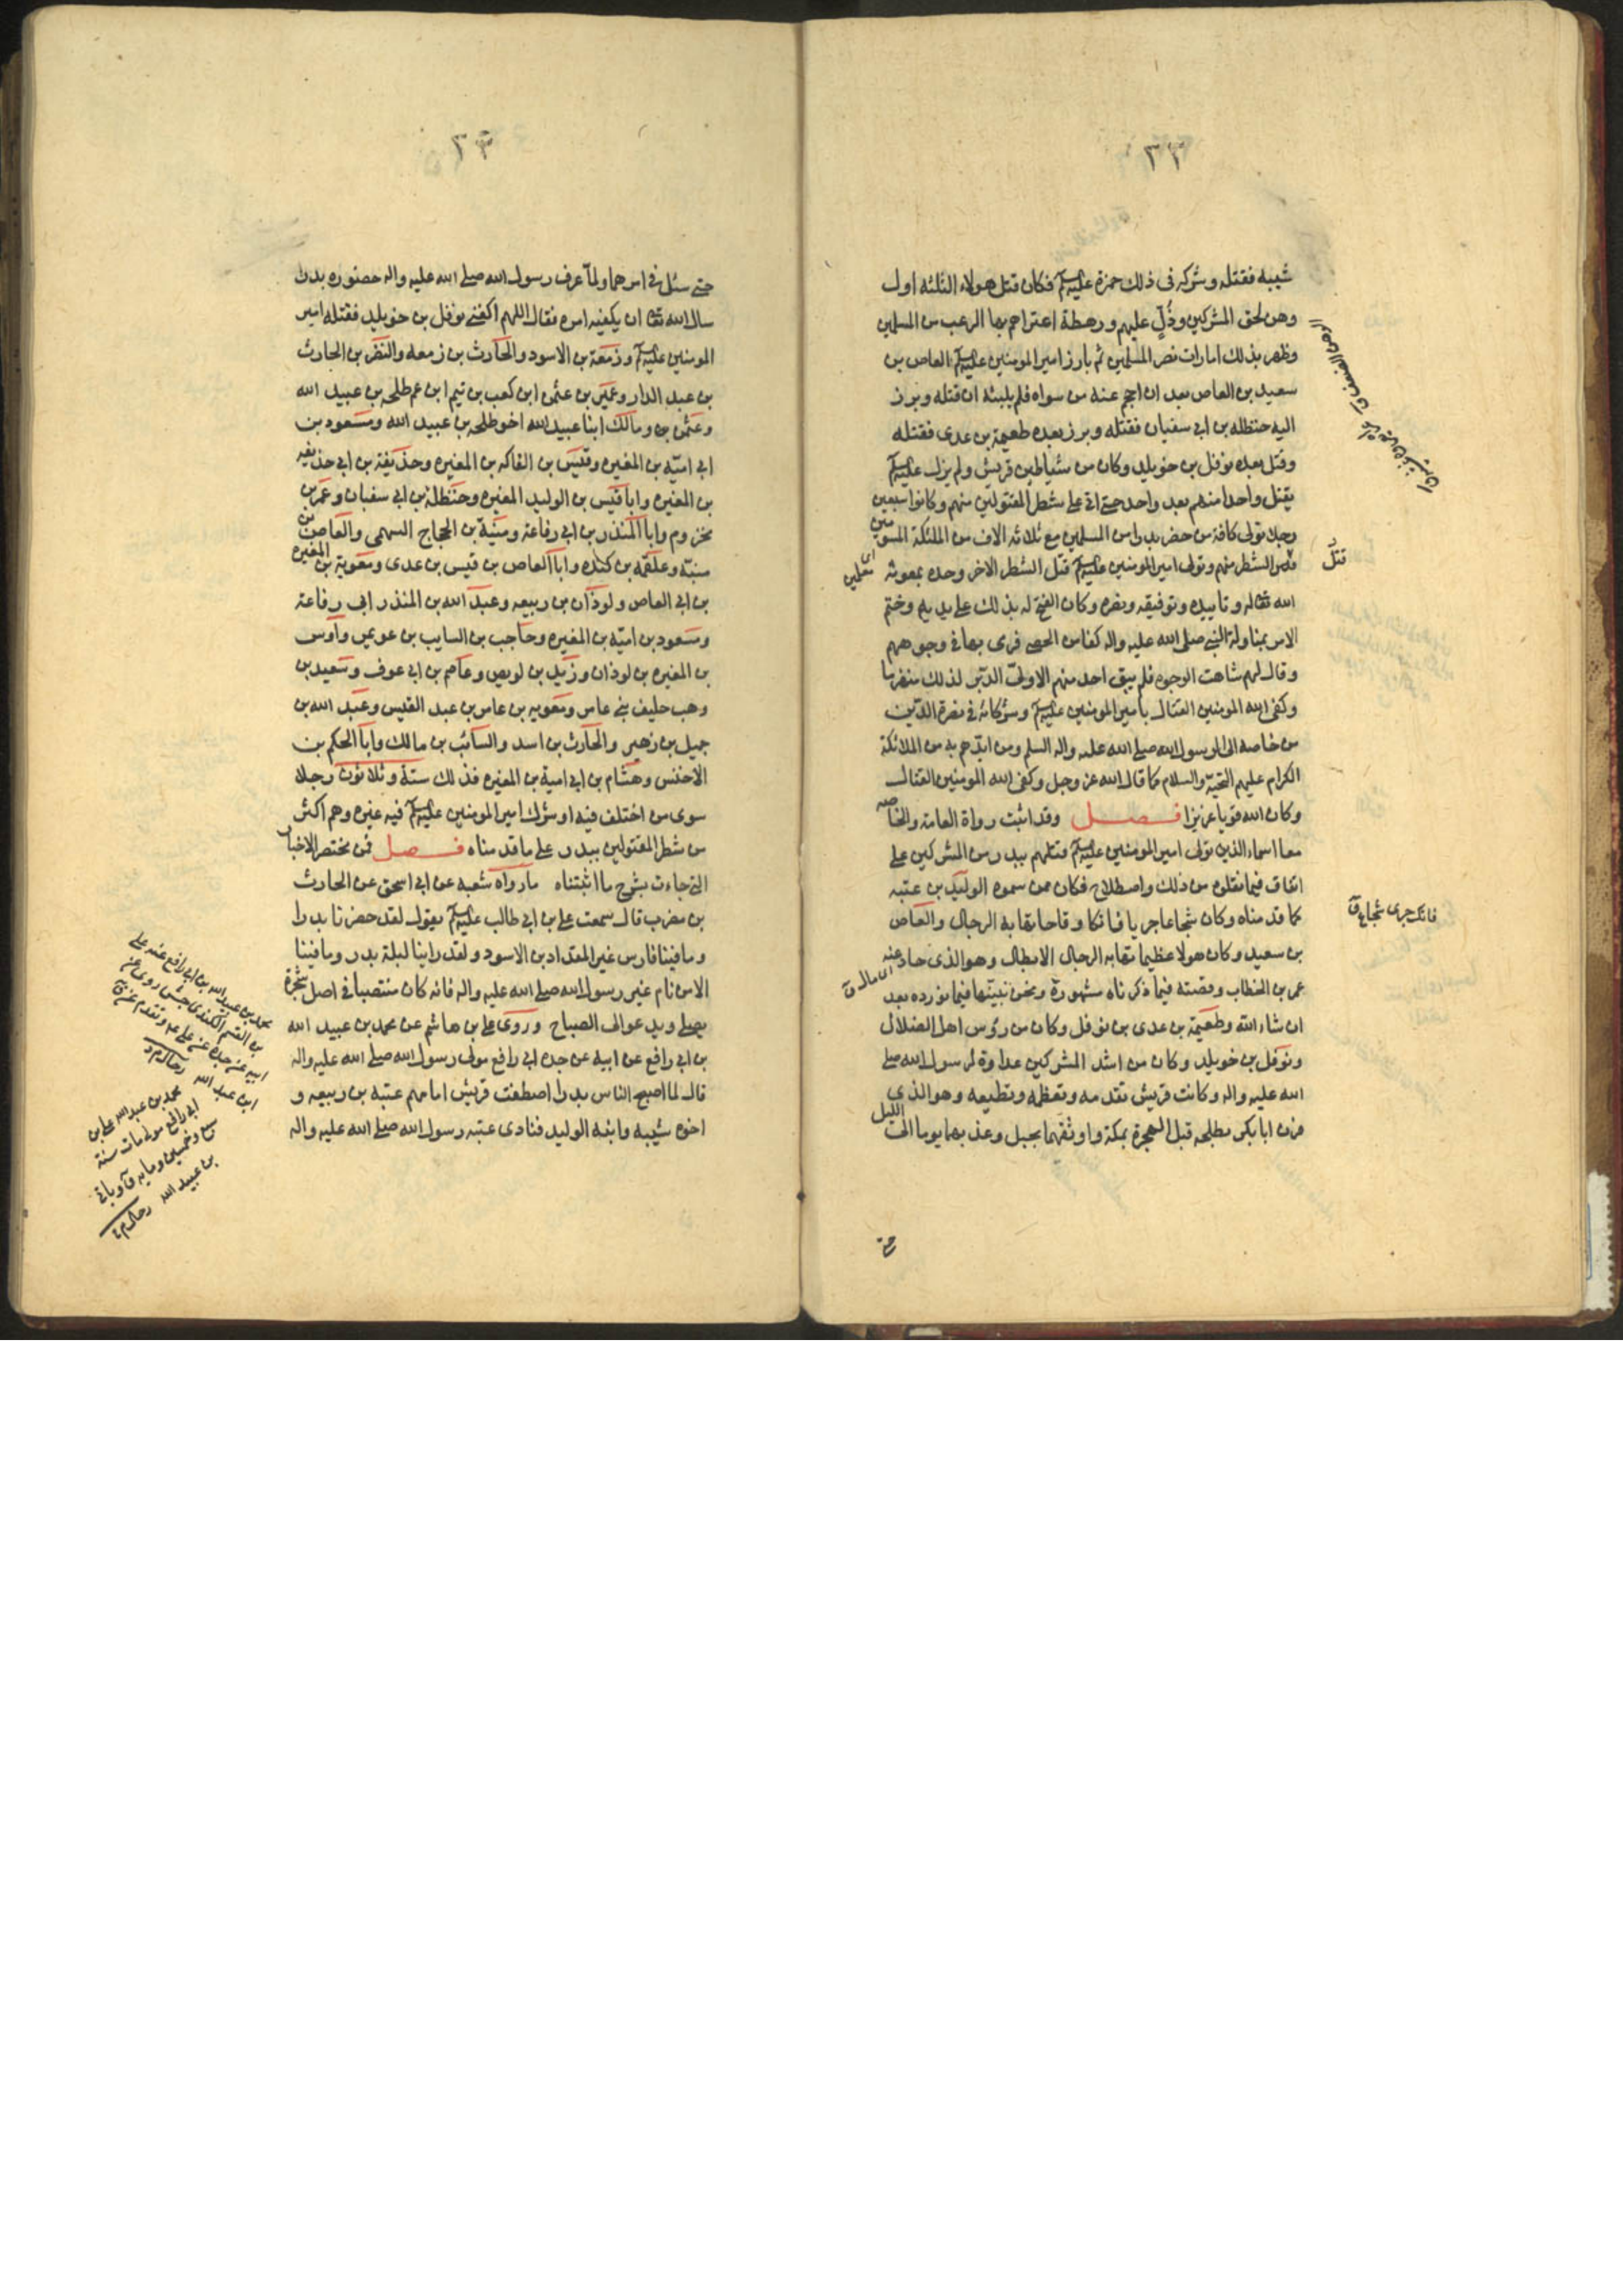 ٣٢
شيبه فقتله وشركه فى ذلك حمزة عليه السلم فكان قتل هولاء الثلثه اول
وهن لحق المشركين وذُلٍّ عليهم ورهطة اعتراهم بها الرعب من المسلمين
وظهر بذلك امارات نصر المسلمين ثم بارز اميرالمومنين عليه السلم العاص بن
سعيد بن العاص بعد ان احجم عنه من سواه فلم يلبثه ان قتله وبرز
اليه حنظله بن ابى سفيان فقتله وبرز بعده طعيمة بن عدى فقتله
وقتل بعده نوفل بن خويلد وكان من شياطين قريش ولم يزل عليه السلم
يقتل واحدا منهم بعد واحد حتى اتى على شطر المقتولين منهم وكانوا سبعين
رجلا تولى كافة من حضر بدرا من المسلمين مع ثلاثه الاف من الملئكة المسومين
قتل الشطر منهم وتولى اميرالمومنين عليه السلم قتل الشطر الاخر وحده بمعونه
الله تعالى له وتاييده وتوفيقه ونصره وكان الفتح له بذلك على يديه وختم
الامر بمناولة النبى صلى الله عليه واله كفا من الحصى فرمى بها فى وجوههم
وقال لهم شاهت الوجوه فلم يبق احد منهم الا ولىّ الدّبر لذلك منهزما
وكفى الله المومنين القتال باميرالمومنين عليه السلم وشركائه فى نصرة الدّين
من خاصه ال الرسول الله صلى الله عليه واله السلم ومن ايّدهم به من الملائكة
الكرام عليهم التحيّة والسلام كما قال الله عز وجل وكفى الله المومنين القتال
وكان الله قويا عزيزا فصل وقد اثبت رواة العامة والخاصه
معا اسماء الذين تولى اميرالمومنين عليه السلم قتلهم ببدر من المشركين على
اتفاق فيما نقلوه من ذلك واصطلاح فكان ممن سموه الوليد بن عتبه
كما قدمناه وكان شجاعا جريا فاتكا وقاحا تهابه الرجال والعاص
بن سعيد وكان هولا عظيما تهابه الرجال الابطال وهو الذى حاد عنه
عمر بن الخطاب وقصته فيما ذكرناه مشهورة ونحن نبيّنها فيما نورده بعد
ان شاء الله وطعيمة بن عدى بن نوفل وكان من رؤس اهل الضلال
ونوفل بن خويلد وكان من اشد المشركين عداوة لرسول الله صلى
الله عليه واله وكانت قريش تقدمه وتعظمه وتطيعه وهو الذى
قرن ابا بكر بطلحه قبل الهجرة بمكة واوثقهما بحبل وعذبهما يوما الى الليل
قتل
اى معلمين
فاتك جرى شجاع ق
اى مال ق
حتى
٣٣
حتى سئل فى امرهما ولمّا عرف رسول الله صلى الله عليه واله حضوره بدرا
سال الله تعالى ان يكفيه امره فقال اللهم اكفنى نوفل بن خويلد فقتله امير
المومنين عليه السلم وزمعة بن الاسود والحارث بن زمعه والنضر بن الحارث
بن عبد الدار وعمير بن عثمن ابن كعب بن تيم ابن عم طلحه بن عبيد الله
وعثمن بن ومالك ابنا عبيد الله اخو طلحه بن عبيد الله ومسعود بن
ابى اميّه بن المغيره وقيس بن الفاكه بن المغيره وحذيفة بن ابى حذيفه
بن المغيره وابا قيس بن الوليد المغيره وحنظلة بن ابى سفيان وعمر بن
مخزوم وابا المنذر بن ابى رفاعة ومنبّه بن الحجاج السهمى والعاص بن
منبّه وعلقمه بن كلده وابا العاص بن قيس بن عدى ومعوية بن المغيره
بن ابى العاص ولوذان بن ربيعه وعبد الله بن المنذر ابى رفاعة
ومسعود بن اميّه بن المغيره وحاجب بن السايب بن عويمر واوس
بن المغيره بن لوذان وزيد بن لويص وعاصم بن ابى عوف وسعيد بن
وهب حليف بنى عامر ومعويه بن عامر بن عبد القيس وعبد الله بن
جميل بن زهير والحارث بن اسد والسائب بن مالك وابا الحكم بن
الاخنس وهشام بن ابى امية بن المغيره فذلك ستة وثلاثون رجلا
سوى من اختلف فيه او شرك اميرالمومنين عليه السلم فيه غيره وهم اكثر
من شطر المقتولين ببدر على ما قدمناه فصل فمن مختصر الاخبار
التى جاءت بشرح ما اثبتناه ما رواه شعبه عن ابى اسحق عن الحارث
بن مضرب قال سمعت على بن ابى طالب عليه السلم يقول لقد حضرنا بدرا
وما فينا فارس غير المقداد بن الاسود ولقد راينا ليلة بدر وما فينا
الا من نام غير رسول الله صلى الله عليه واله فانه كان منتصبا فى اصل شجرة
يصلى ويدعو الى الصباح وروى على بن هاشم عن محمد بن عبيد الله
بن ابى رافع عن ابيه عن جده ابى رافع مولى رسول الله صلى الله عليه واله
قال لما اصبح الناس بدرا اصطفت قريش امامهم عتبه بن ربيعه و
اخوه شيبه وابنه الوليد فنادى عتبه رسول الله صلى الله عليه واله
محمد بن عبيد الله بن ابى رافع عنه على
بن القسم الكندى روى عن
ابيه عن جده عن على وتقدم عن ق
ابن عبد الله رجال
محمد بن عبد الله على بن
ابى رافع مولى مات سنة
وخمسين وماية
بن عبيد الله رجال